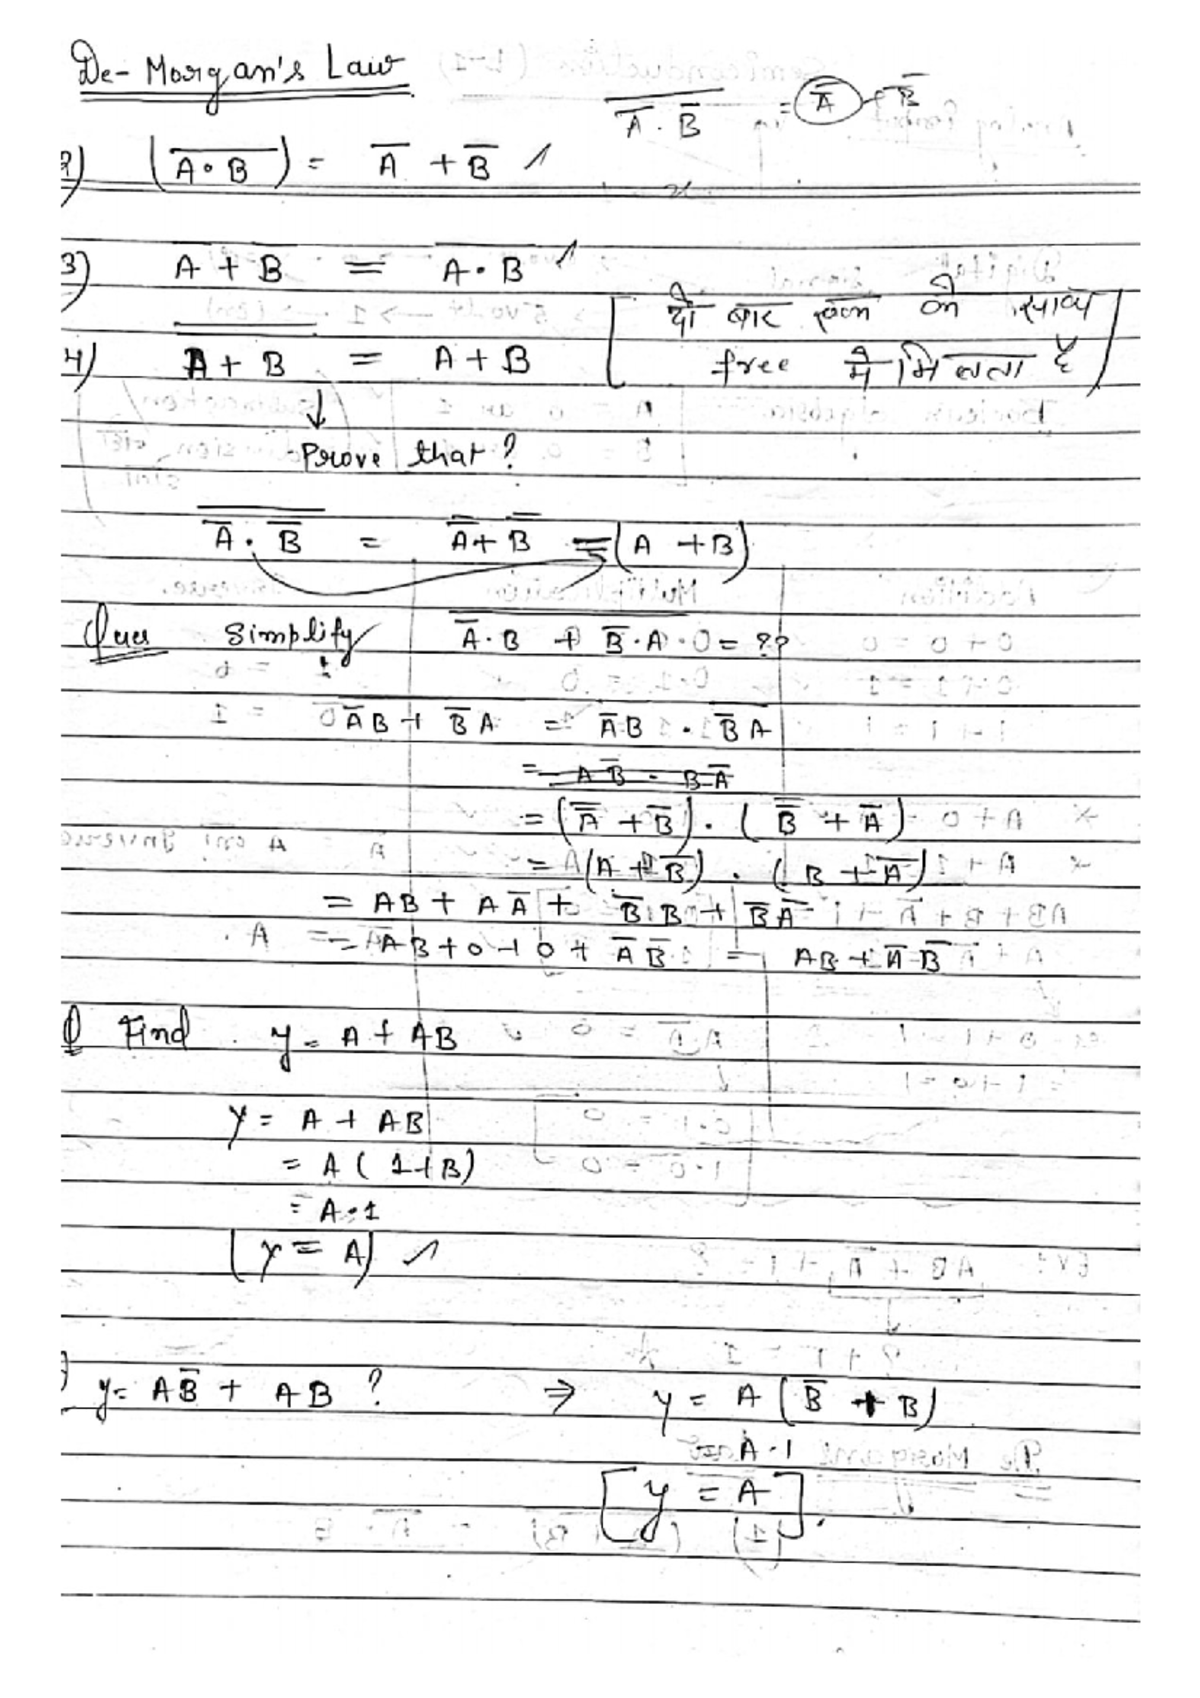 De-Morgan's Law
\overline{\overline{A} . \overline{B}} = \overline{\overline{A}} + \overline{\overline{B}}
2) (\overline{A • B}) = \overline{A} + \overline{B}
3) \overline{A + B} = \overline{A • B}
दो बार
4) \overline{\overline{A + B}} = A + B
free मे मिलता है
↓
Prove that?
\overline{\overline{A} . \overline{B}} = \overline{\overline{A}} + \overline{\overline{B}} = (A + B)
Ques Simplify \overline{\overline{A} . B + \overline{B} . A} = ??
\overline{\overline{A}B + \overline{B}A} = \overline{\overline{A}B} . \overline{\overline{B}A}
= A\overline{B} . B\overline{A}
= (\overline{\overline{A}} + \overline{B}) . (\overline{\overline{B}} + \overline{A})
= (A + \overline{B}) . (B + \overline{A})
= AB + A\overline{A} + \overline{B}B + \overline{B}\overline{A}
= AB + 0 + 0 + \overline{A}\overline{B} = AB + \overline{A}\overline{B}
Q Find y = A + AB
Y = A + AB
= A (1+B)
= A • 1
Y = A
y = A\overline{B} + AB ? ⇒ y = A (\overline{B} + B)
A . 1
[y = A].